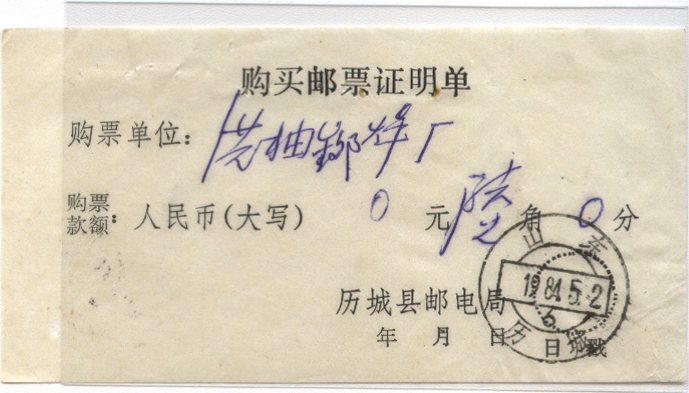 购买邮票证明单
购票单位：
购票款额：人民币(大写) 0 元 陆 角 0 分
历城县邮电局
年 月 日 日戳
山东
1984.5.2
6
历城